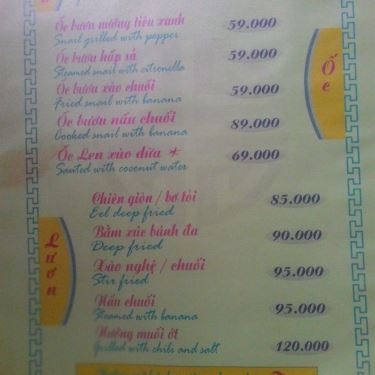 Ốc bươu nướng tiêu xanh 59.000
Snail grilled with pepper
Ốc bươu hấp sả 59.000
Steamed snail with citronella
Ốc bươu xào chuối 59.000
Fried snail with banana
Ốc bươu nấu chuối 89.000
Cooked snail with banana
Ốc Len xào dừa * 69.000
Sauted with coconut water
Ốc
Chiên giòn / bơ tỏi 85.000
Eel deep fried
Bằm xúc bánh đa 90.000
Deep fried
Xào nghệ / chuối 95.000
Stir fried
Nấu chuối 95.000
Steamed with banana
Nướng muối ớt 120.000
Grilled with chili and salt
Lươn